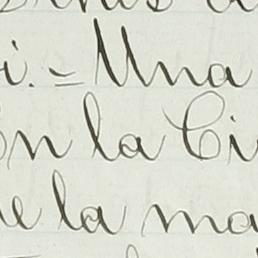 i.= Una
on la Ci
e la ma